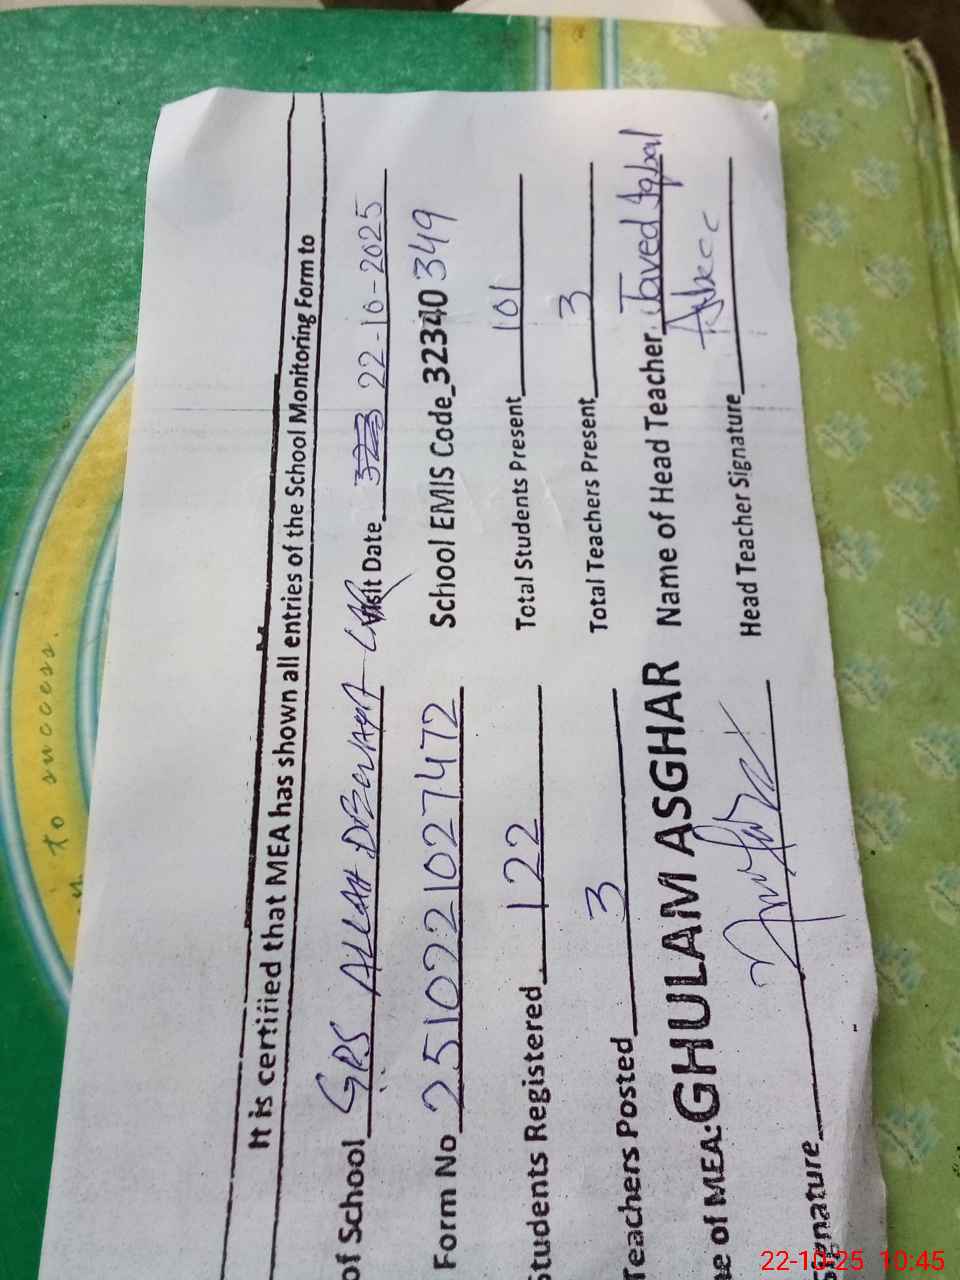 It is certified that MEA has shown all entries of the School Monitoring Form to
of School GPS ALLAH DIEWAYA LAR Visit Date 22-10-2025
Form No 2510221027472 School EMIS Code_32340349
Students Registered 122 Total Students Present 101
Teachers Posted 3 Total Teachers Present 3
e of MEA:GHULAM ASGHAR Name of Head Teacher Javed Iqbal
Signature Head Teacher Signature
to success.
22-10-25 10:45